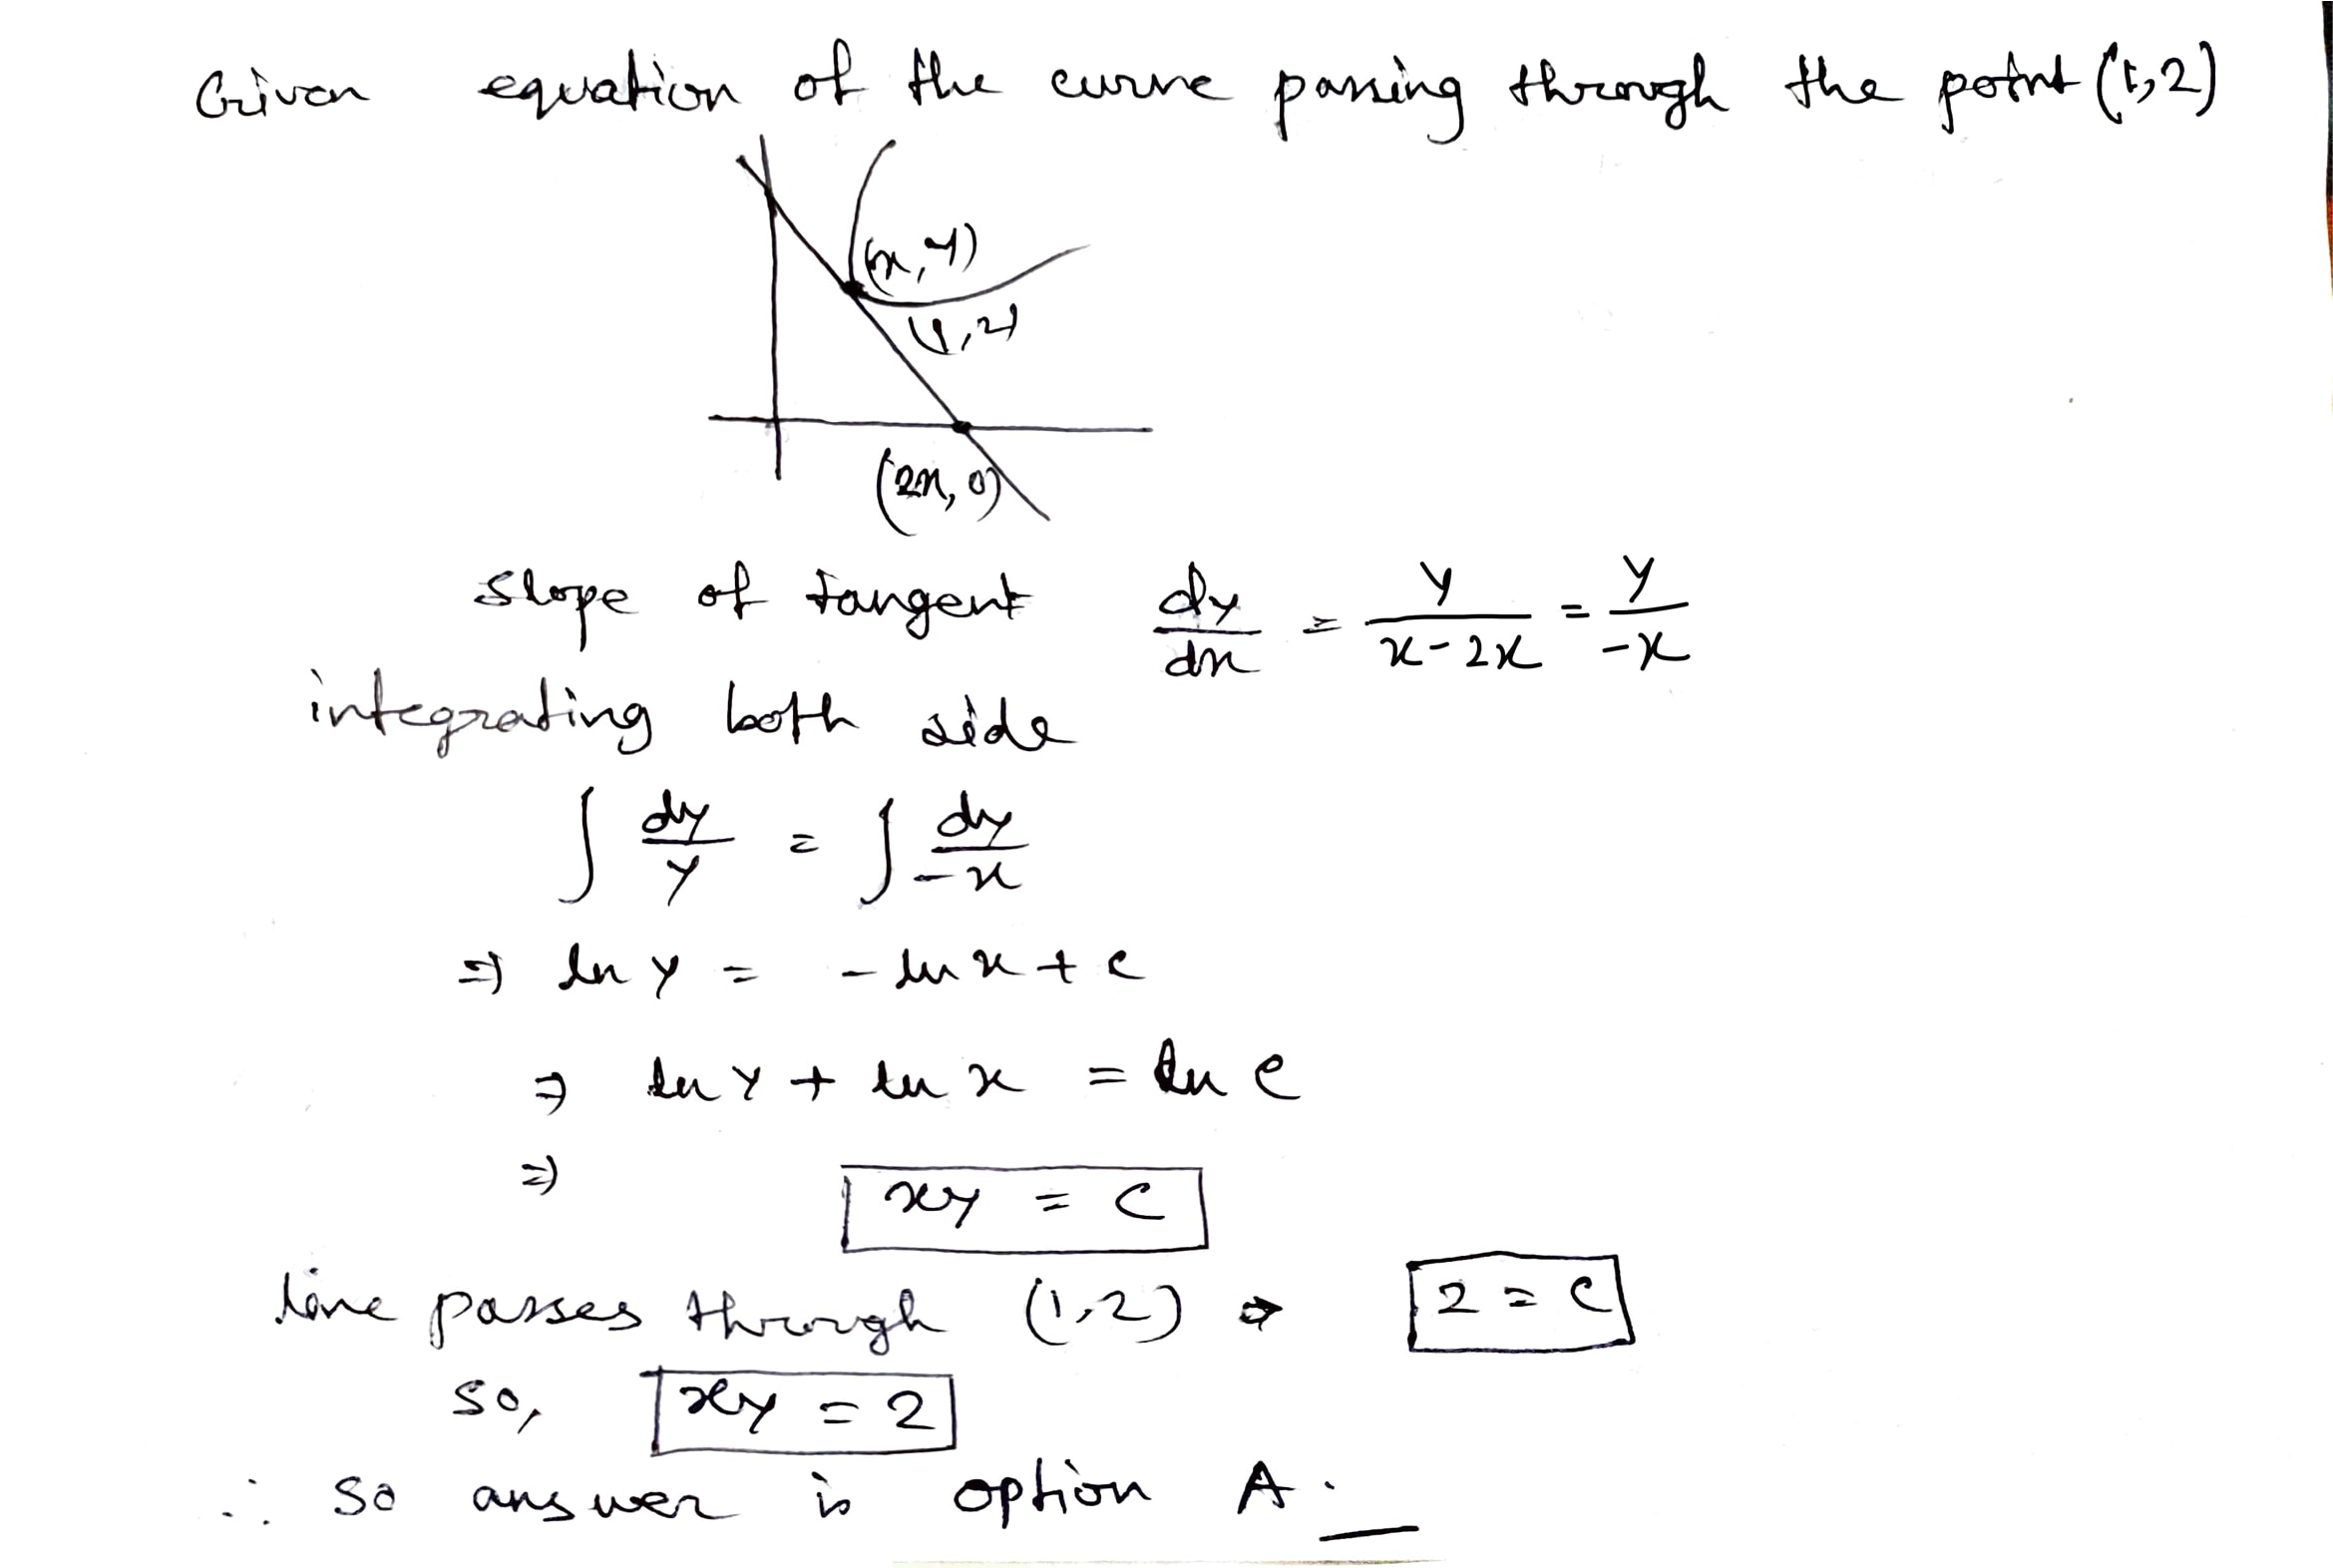 Given equation of the curve passing through the point (1,2)
(x,y)
(1,2)
(2x,0)
slope of tangent dy/dx = y/(x-2x) = y/-x
integrating both side
∫ dy/y = ∫ dy/-x
⇒ ln y = - ln x + c
⇒ ln y + ln x = ln c
⇒ xy = c
line passes through (1,2) ⇒ 2 = c
so, xy = 2
∴ so answer is option A.